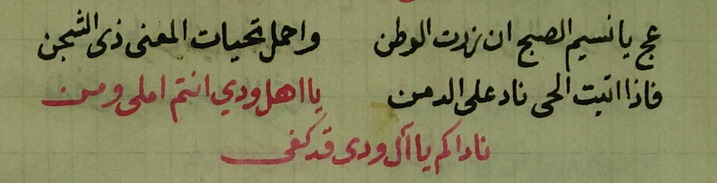 عج يا نسيم الصبح ان زرت الوطن واحمل تحيات المعنى ذى الشجن
فاذا اتيت الحى ناد على الدمن يا اهل ودي انتم املى ومن
ناداكم يا آل ودى قد كفى